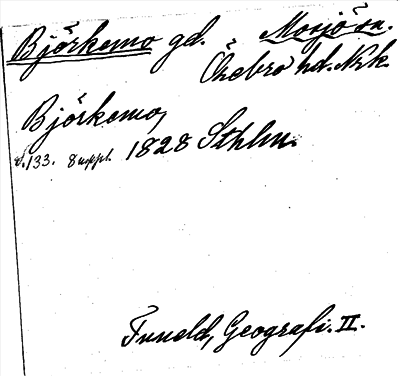 Björkemo gd. Mosjö sn.
Örebro hd. Nrk.
Björkemo,
s. 133. 8 uppl. 1828 Sthlm.
Tuneld, Geografi. II.